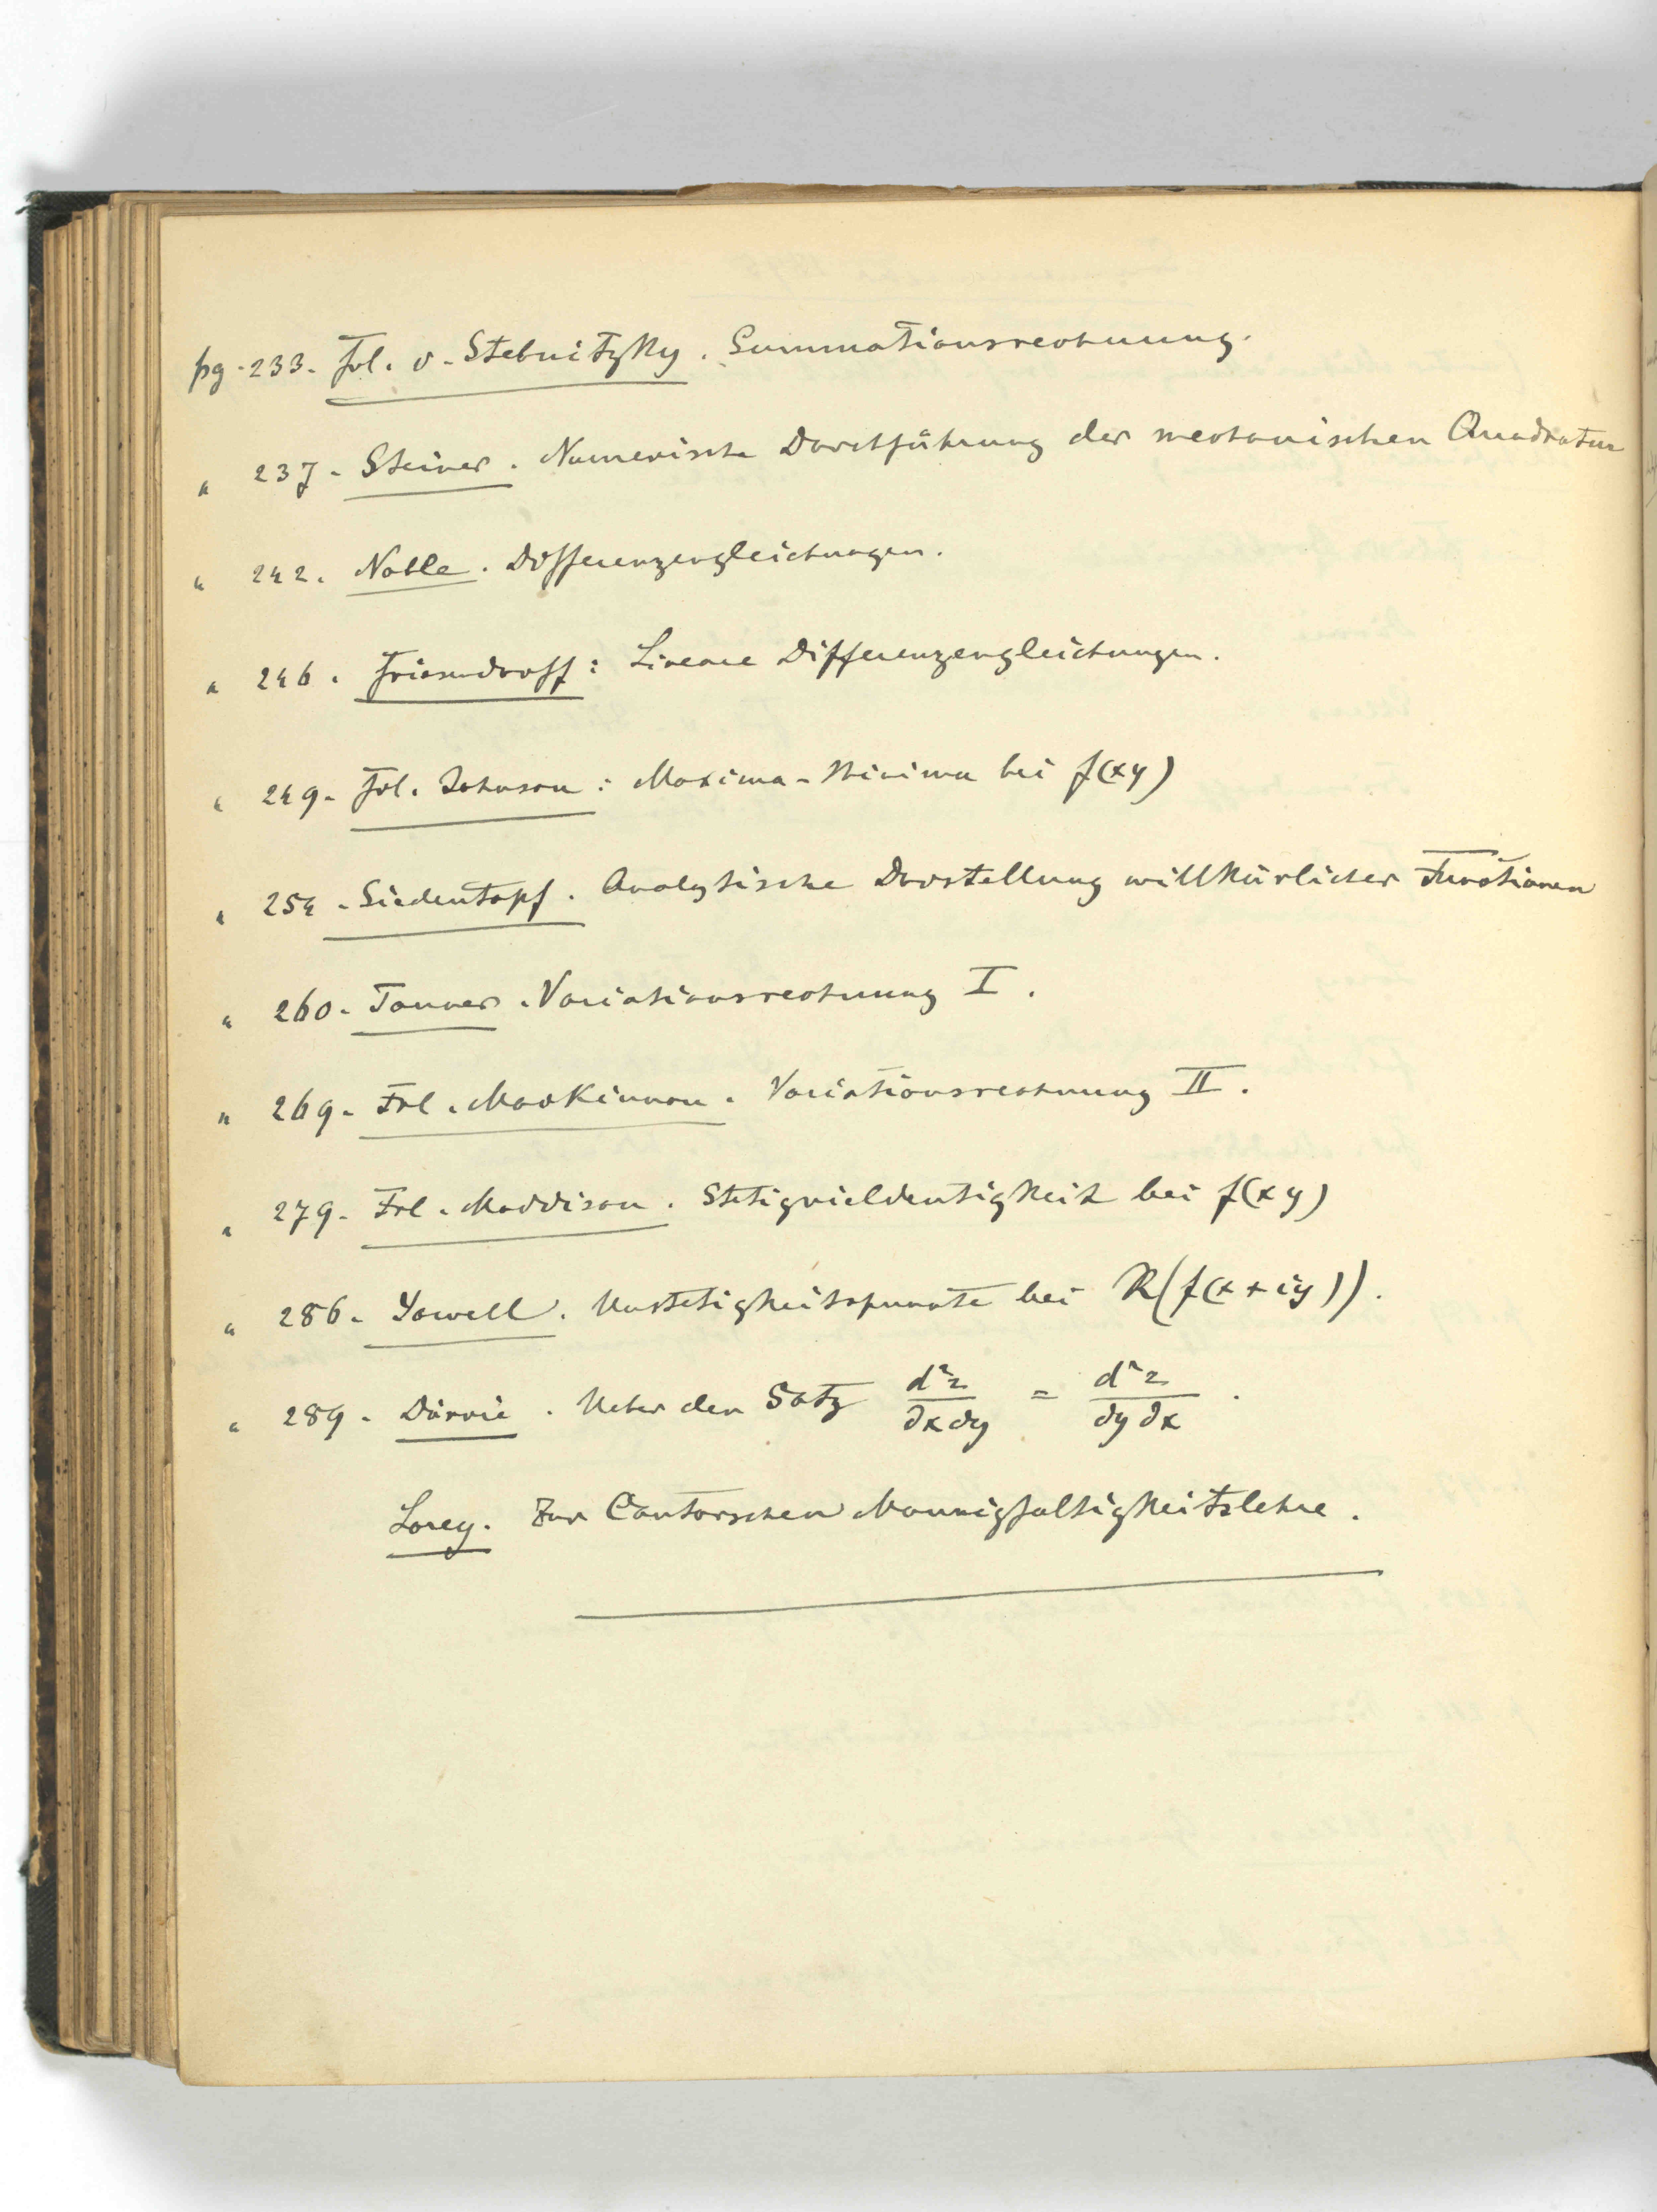 pg. 233. Frl. v. Stebnitzky. Summationsrechnung.
" 237. Steiner. Numerische Durchführung der mechanischen Quadratur
" 242. Noble. Differenzengleichungen.
" 246. Friesendorff: Lineare Differenzengleichungen.
" 249. Frl. Johnson: Maxima-Minima bei f(xy)
" 254. Siedentopf. Analytische Darstellung willkürlicher Functionen
" 260. Tanner. Variationsrechnung I.
" 269. Frl. MacKinnon. Variationsrechnung II.
" 279. Frl. Maddison. Stetigvieldeutigkeit bei f(xy)
" 286. Yowell. Unstetigkeitspunkte bei R(f(x+iy)).
" 289. Dörrie. Ueber den Satz d²z/∂x∂y = d²z/∂y∂x.
Lorey. Zur Cantorschen Mannigfaltigkeitslehre.